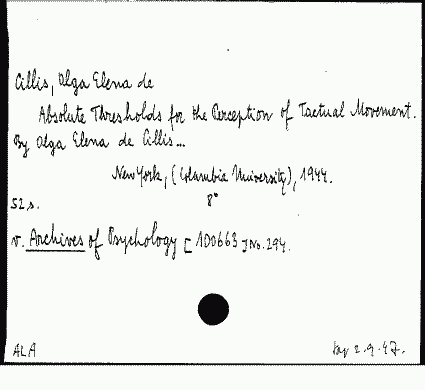 Cillis, Olga Elena de
Absolute Thresholds for the Perception of Tactual Movement.
By Olga Elena de Cillis...
New York, (Columbia University), 1944.
52 s. 8°
v. Archives of Psychology [1D0663] No. 294.
ALA 2.9.47.